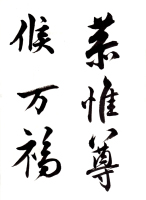 恭惟尊
候万福